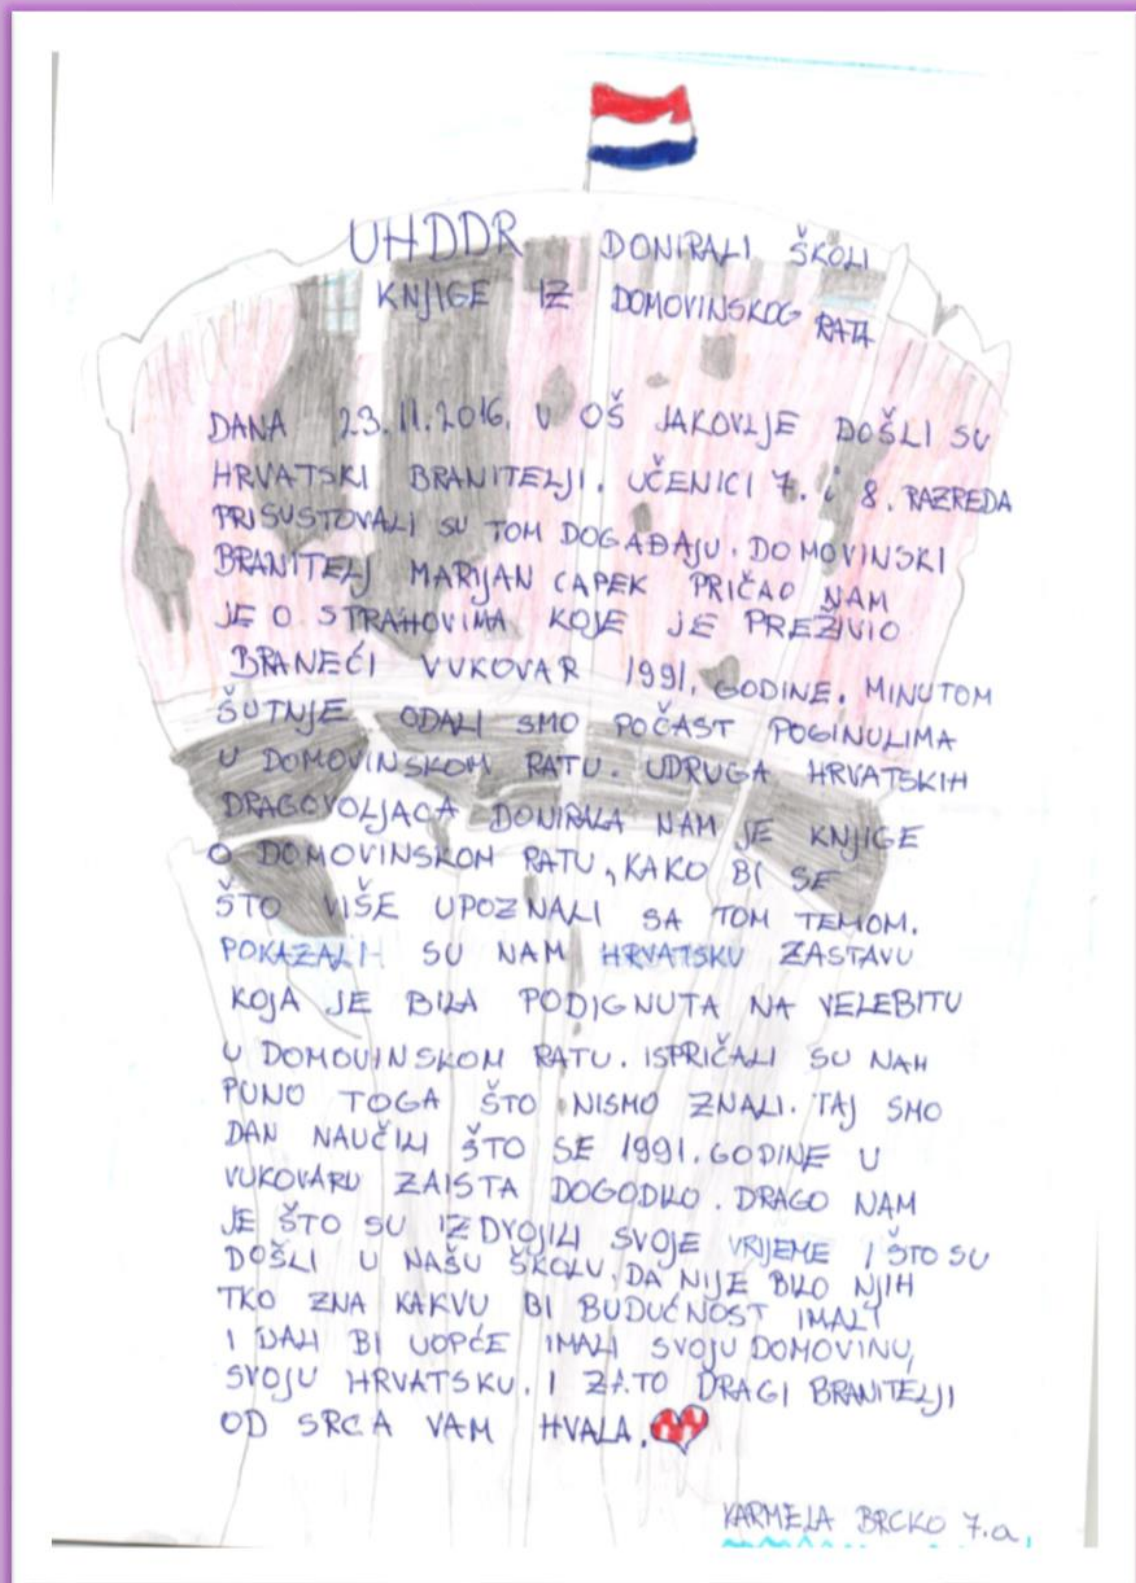 UHDDR DONIRALI ŠKOLI
KNJIGE IZ DOMOVINSKOG RATA
DANA 23.11.2016. U OŠ JAKOVLJE DOŠLI SU
HRVATSKI BRANITELJI. UČENICI 7. i 8. RAZREDA
PRISUSTOVALI SU TOM DOGAĐAJU. DOMOVINSKI
BRANITELJ MARIJAN CAPEK PRIČAO NAM
JE O STRAHOVIMA KOJE JE PREŽIVIO
BRANEĆI VUKOVAR 1991. GODINE. MINUTOM
ŠUTNJE ODALI SMO POČAST POGINULIMA
U DOMOVINSKOM RATU. UDRUGA HRVATSKIH
DRAGOVOLJACA DONIRALA NAM JE KNJIGE
O DOMOVINSKOM RATU, KAKO BI SE
ŠTO VIŠE UPOZNALI SA TOM TEMOM.
POKAZALI SU NAM HRVATSKU ZASTAVU
KOJA JE BILA PODIGNUTA NA VELEBITU
U DOMOVINSKOM RATU. ISPRIČALI SU NAM
PUNO TOGA ŠTO NISMO ZNALI. TAJ SMO
DAN NAUČILI ŠTO SE 1991. GODINE U
VUKOVARU ZAISTA DOGODILO. DRAGO NAM
JE ŠTO SU IZDVOJILI SVOJE VRIJEME I ŠTO SU
DOŠLI U NAŠU ŠKOLU, DA NIJE BILO NJIH
TKO ZNA KAKVU BI BUDUĆNOST IMALI
I DALI BI UOPĆE IMALI SVOJU DOMOVINU,
SVOJU HRVATSKU. I ZATO DRAGI BRANITELJI
OD SRCA VAM HVALA.
KARMELA BRCKO 7.a